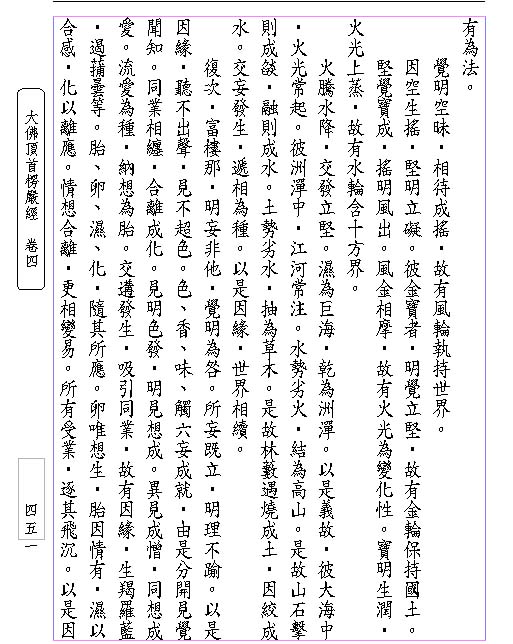 有為法。
覺明空昧，相待成搖，故有風輪執持世界。
因空生搖，堅明立礙。彼金寶者，明覺立堅，故有金輪保持國土。
堅覺寶成，搖明風出。風金相摩，故有火光為變化性。寶明生潤，
火光上蒸，故有水輪含十方界。
火騰水降，交發立堅。濕為巨海，乾為洲潬。以是義故，彼大海中
，火光常起。彼洲潬中，江河常注。水勢劣火，結為高山。是故山石擊
則成燄，融則成水。土勢劣水，抽為草木。是故林藪遇燒成土，因絞成
水。交妄發生，遞相為種。以是因緣，世界相續。
復次，富樓那，明妄非他，覺明為咎。所妄既立，明理不踰。以是
因緣，聽不出聲，見不超色。色、香、味、觸六妄成就，由是分開見覺
聞知。同業相纏，合離成化。見明色發，明見想成。異見成憎，同想成
愛。流愛為種，納想為胎。交遘發生，吸引同業，故有因緣，生羯羅藍
，遏蒱曇等。胎、卵、濕、化，隨其所應。卵唯想生，胎因情有，濕以
合感，化以離應。情想合離，更相變易。所有受業，逐其飛沉。以是因
大佛頂首楞嚴經　卷四
四五一